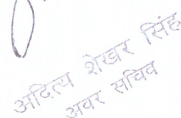 अदित्य शेखर सिंह
अवर सचिव